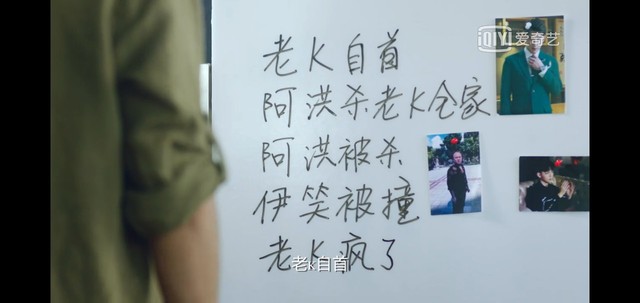 iQIYI 爱奇艺
老K自首
阿洪杀老K全家
阿洪被杀
伊笑被撞
老K疯了
老k自首